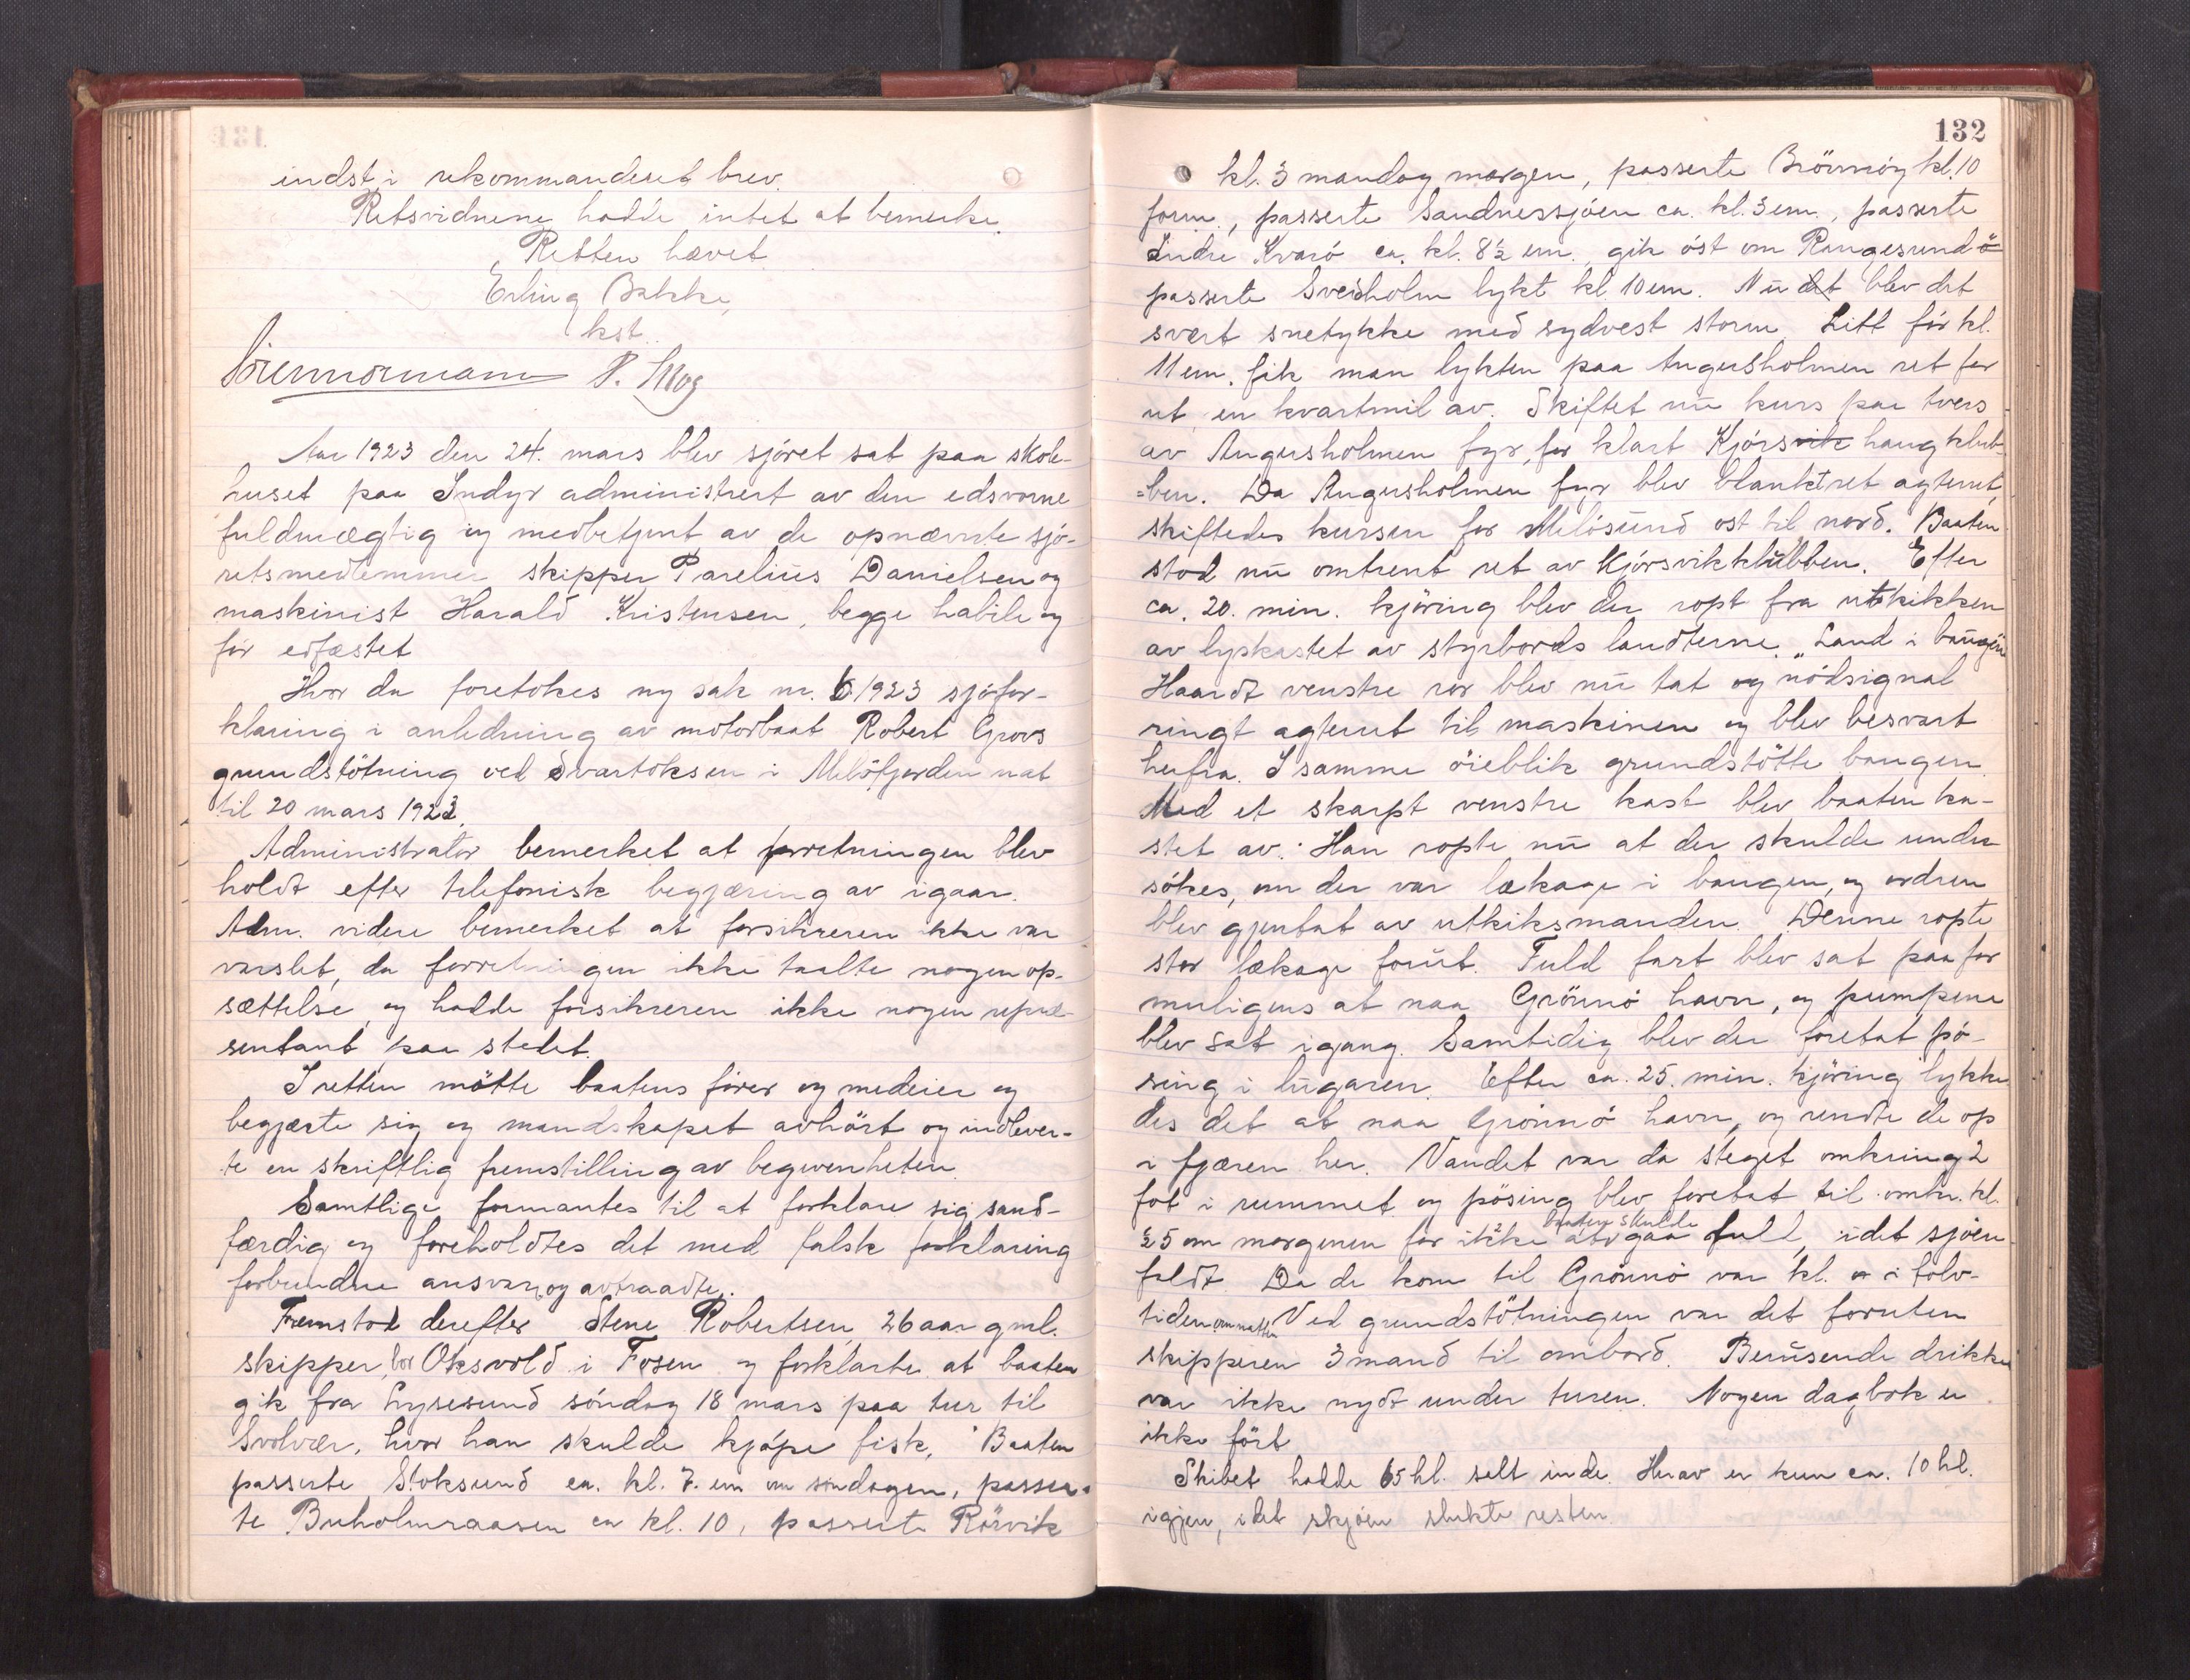 indst. i rekommanderet brev.
Retsvidnene hadde intet at bemerke.
Retten hævet
Erling Bakke,
kst.
Aar 1923 den 24. mars blev sjöret sat paa skole-
huset paa Indyr administrert av den edsvorne
fuldmægtig og medbetjent av de opnævnte sjö-
retsmedlemmer skipper Parelius Danielsen og
maskinist Harald Kristensen, begge habile og
för edfæstet
Hvor da foretokes ny sak nr. 6 1923 sjöfor-
klaring i anledning av motorbaat Robert Grovs
grundstötning ved Svartoksen i Melöfjorden nat
til 20 mars 1923.
Administrator bemerket at forretningen blev
holdt efter telefonisk begjæring av igaar.
Adm. videre bemerket at forsikreren ikke var
varslet, da forretningen ikke taalte nogen op-
sættelse, og hadde forsikreren ikke nogen repræ-
sentant paa stedet.
I retten mötte baatens förer og medeier og
begjærte sig og mandskapet avhört og indlever-
te en skriftlig fremstilling av begivenheten.
Samtlige formantes til at forklare sig sand-
færdig og foreholdtes det med falsk forklaring
forbundne ansvar, og avtraadte.
Fremstod derefter Stene Robertsen, 26 aar gml.
skipper, bor Oksvold i Fosen og forklarte at baaten
gik fra Lysesund söndag 18 mars paa tur til
Svolvær, hvor han skulde kjöpe fisk. Baaten
passerte Stoksund ca. kl. 7. em om söndagen, passer-
te Buholmraasen ca kl. 10, passerte Rörvik
132
kl. 3 mandag morgen, passerte Brönnöy kl. 10
form., passerte Sandnessjöen ca. kl. 3 em., passerte
Indre Kvarö ca. kl. 8½ em., gik öst om Rangesundö
passerte Sveisholm lykt kl. 10 em. Nu det blev det
svært snetykke med sydvest storm. Litt för kl.
11 em. fik man lykten paa Angersholmen ret for
ut, en kvartmil av. Skiftet nu kurs paa tvers
av Angersholmen fyr, for klart Kjörsvik haug klub-
=ben. Da Angersholmen fyr blev blankt ret agterut,
skiftedes kursen for Melösund ost til nord. Baaten
stod nu omtrent ret av Kjörsvikklubben. Efter
ca. 20. min. kjöring blev der ropt fra utkikken
av lyskastet av styrbords landterne. „Land i baugen"
Haardt venstre ror blev nu tat og nödsignal
ringt agterut til maskinen og blev besvart
herfra. I samme öieblik grundstötte baugen.
Med et skarpt venstre kast blev baaten ka-
stet av. Han ropte nu at der skulde under-
sökes, om der var lækage i baugen, og ordren
blev gjentat av utkiksmanden. Denne ropte
stor lækage forut. Fuld fart blev sat paa for
muligens at naa Grönnö havn, og pumpene
blev sat igang. Samtidig blev der foretat pö-
sing i lugaren. Efter ca. 25. min. kjöring lykke
des det at naa Grönnö havn, og rendte de op
i fjæren her. Vandet var da steget omkring 2
fot i rummet og pösing blev foretat til omkr. kl.
½5 om morgenen for ikke at baaten skulde gaa full, idet sjöen
faldt. Da de kom til Grönnö var kl. i tolv-
tiden om natten. Ved grundstötningen var det foruten
skipperen 3 mand til ombord. Berusende drikke
var ikke nydt under turen. Nogen dagbok er
ikke fört
Skibet hadde 65 hl. salt inde. Herav er kun ca. 10 hl.
igjen, idet skjöen slukte resten.